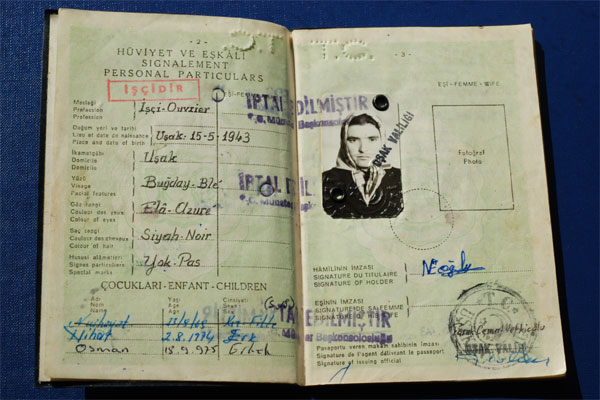 - 2 -
HÜVİYET VE EŞKÂLİ
SIGNALEMENT
PERSONAL PARTICULARS
İŞÇİDİR
EŞİ-FEMME-WIFE
Mesleği
Profession
Profession
İşçi-Ouvrier
Doğum yeri ve tarihi
Lieu et date de naissance
Place and date of birth
Uşak-15-5-1943
İkametgâhı
Domicile
Domicile
Uşak
Yüzü
Visage
Facial features
Buğday-Blé
Göz rengi
Couleur des yeux
Colour of eyes
Elâ-Azure
Saç rengi
Couleur des cheveux
Colour of hair
Siyah-Noir
Hususi alâmetleri
Signes particuliers
Special marks
Yok-Pas
ÇOCUKLARI-ENFANT-CHILDREN
Adı
Nom
Name
Yaşı
Age
Age
Cinsiyeti
Nihat 2.8.1974 Erk
Osman 15.9.975 Erkek
İPTAL EDİLMİŞTİR
İPTAL EDİL
EDİLMİŞTİR
Başkonsolosluğu
- 3 -
EŞİ-FEMME-WIFE
UŞAK VALİLİĞİ
Fotoğraf
Photo
HÂMİLİNİN İMZASI
SIGNATURE DU TITULAIRE
SIGNATURE OF HOLDER
EŞİNİN İMZASI
SIGNATURE DE SA FEMME
SIGNATURE OF WIFE
T.C.
UŞAK VALİLİĞİ
Pasaportu veren makam sahibinin imzası
Signature de l'agent délivrant le passeport
Signature of issuing official